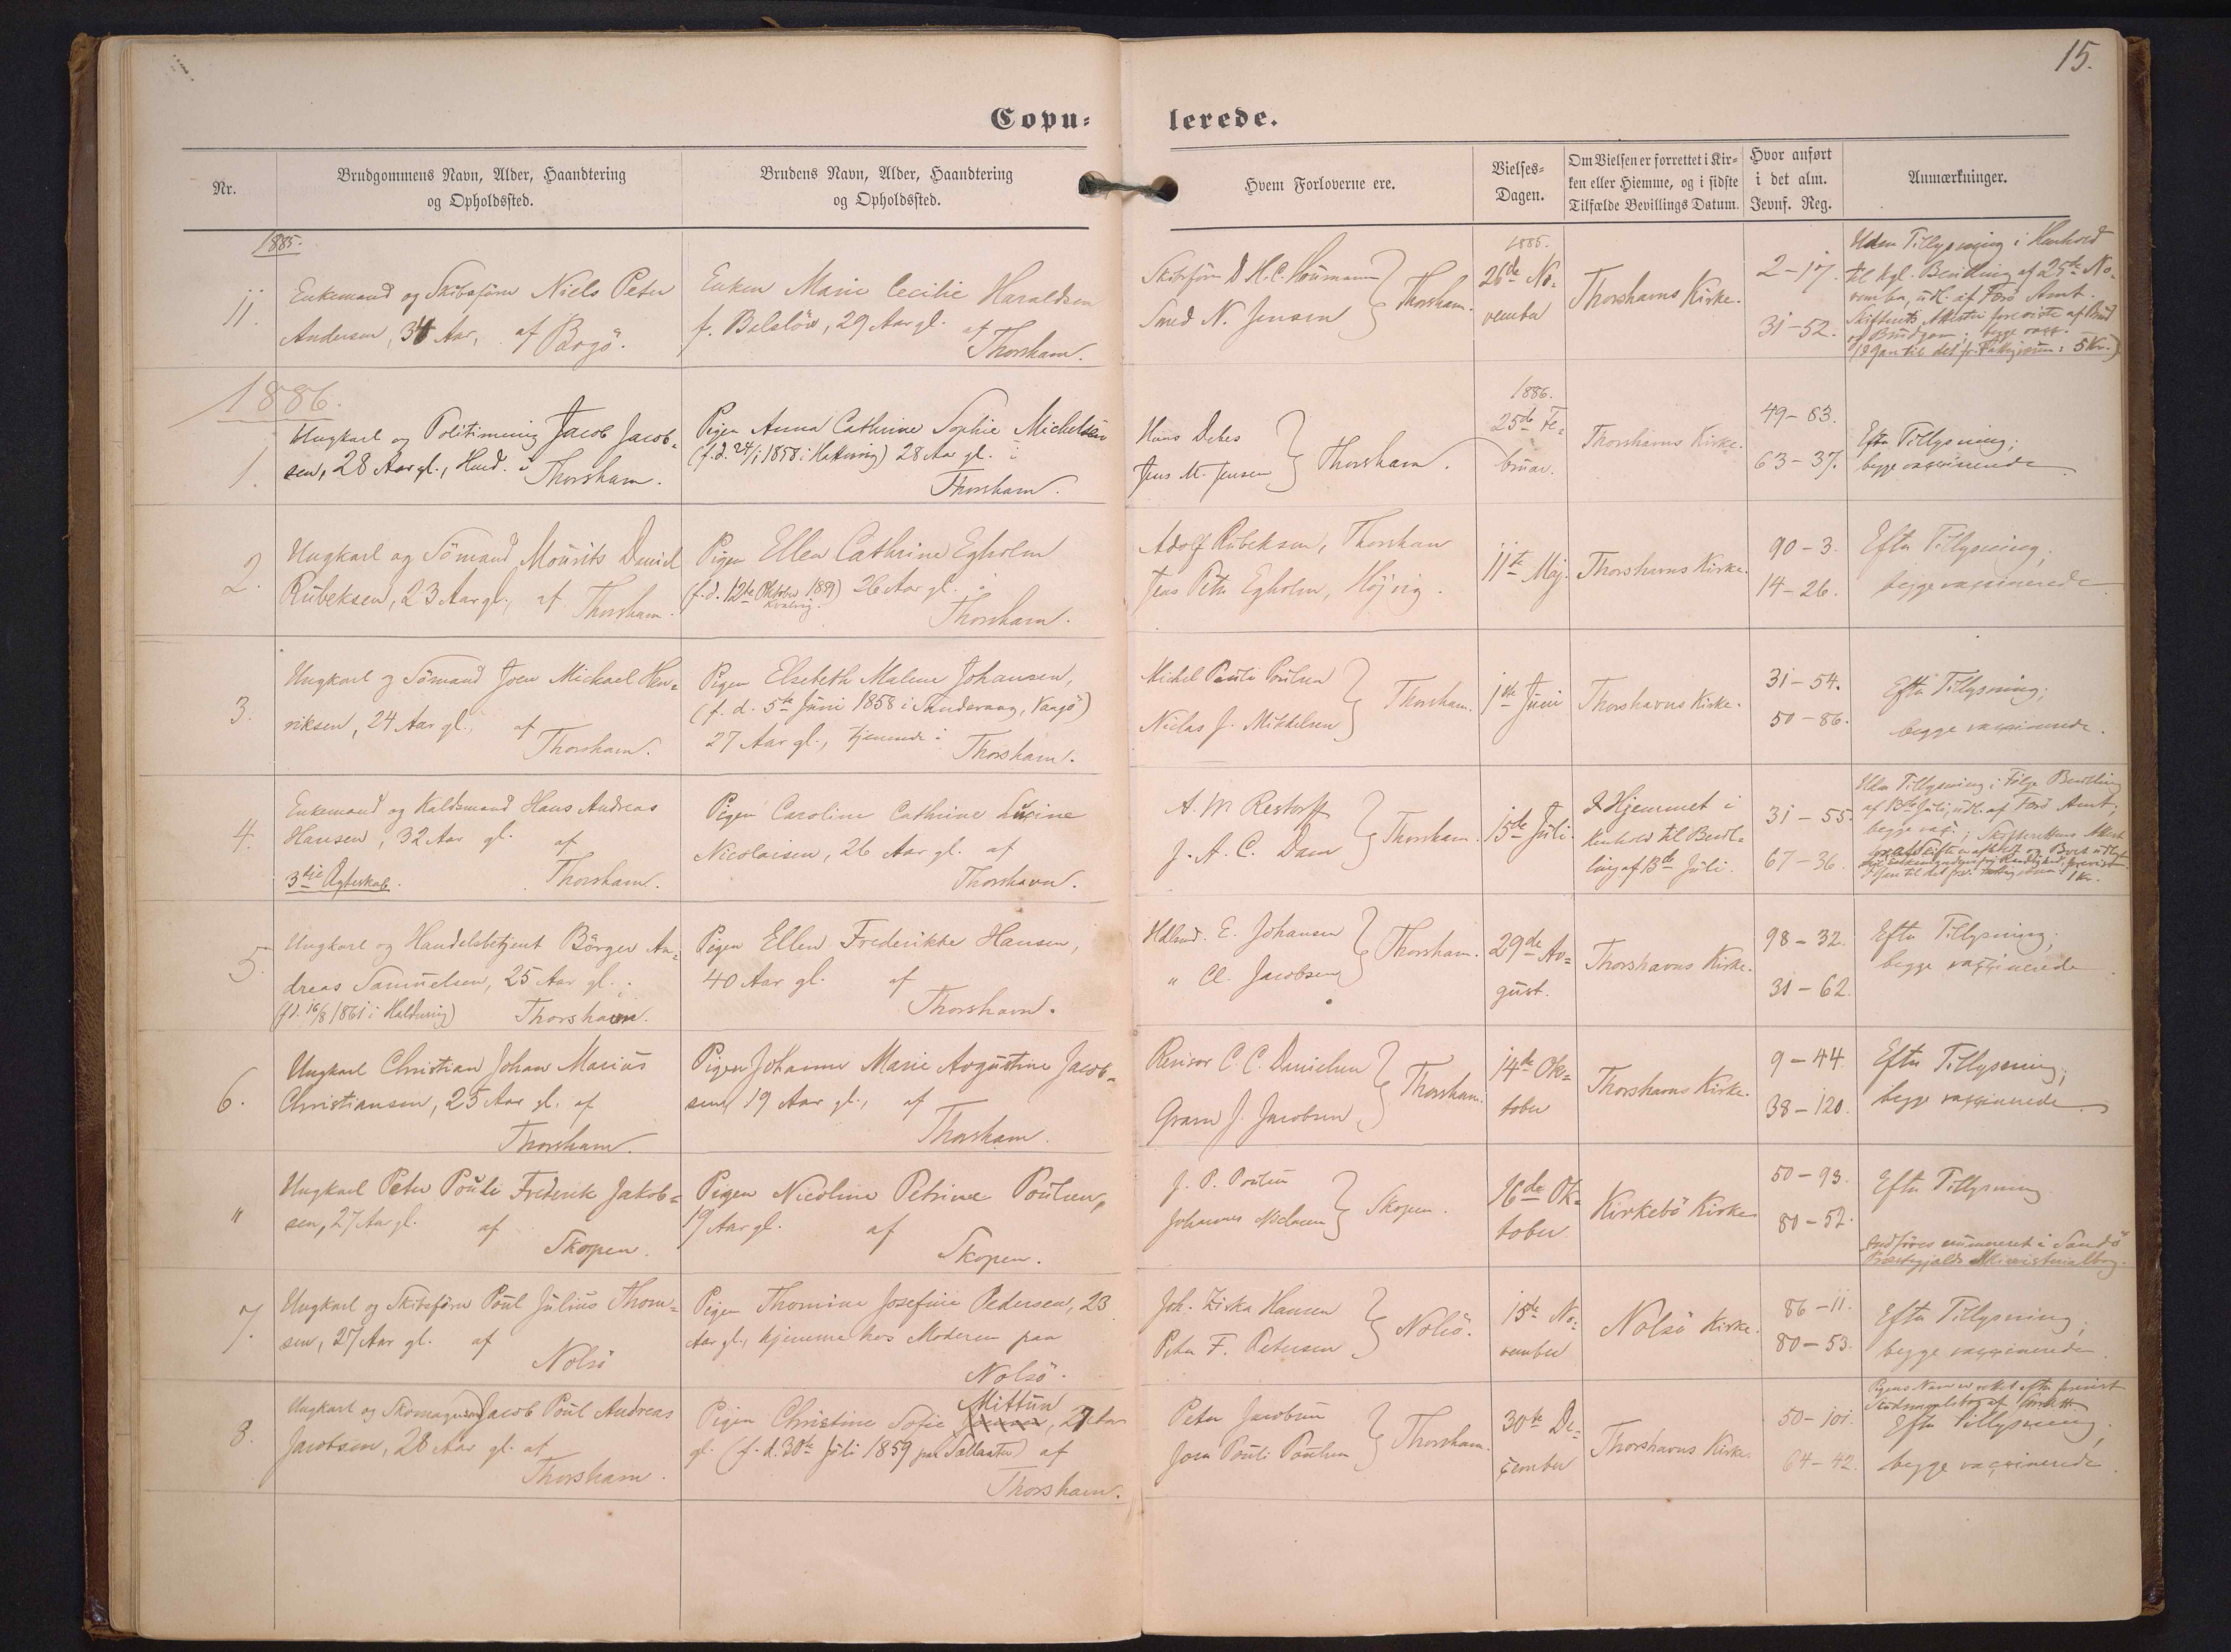 15.
Copu=
lerede.
Nr.
Brudgommens Navn, Alder, Haandtering
og Opholdssted.
Brudens Navn, Alder, Haandtering
og Opholdssted.
Hvem Forloverne ere.
Vielses=
Dagen.
Om Vielsen er forrettet i Kir=
ken eller Hiemme, og i sidste
Tilfælde Bevillings Datum.
Hvor anført
i det alm.
Jevnf. Reg.
Anmærkninger.
1885.
11.
Enkemand og Skibsfører Niels Peter
Andersen, 34 Aar, af Borgö.
Enken Marie Cecilie Haraldsen
f. Belslöw, 29 Aar gl. af
Thorshavn.
Skibsfører D. H. C.
Smed N. Jensen } Thorshavn.
1885.
26de No=
vember
Thorshavns Kirke.
2-17.
31-52.
Uden Tillysning i Henhold
til kgl. Bevilling af 25de No=
vember, udst. af Færö Amt.
Skifterets Attester foreviste af Brud
og Brudgom; begge vacc.
5 Kr.)
1886.
1.
Ungkarl og Politimning Jacob Jacob=
sen, 28 Aar gl., Hmd. i Thorshavn.
Pigen Anna Cathrine Sophie Michelsen
(f. d. 24/1 1858 i Hattervig) 28 Aar gl. i
Thorshavn.
Hans Debes
Jens M. Jensen } Thorshavn.
1886.
25de Fe=
bruar.
Thorshavns Kirke.
49-63.
63-37.
Efter Tillysning;
begge vaccinerede
2.
Ungkarl og Sömand Mourits Daniel
Rubeksen, 23 Aar gl., af Thorshavn.
Pigen Ellen Cathrine Egholm
(f. d. 12te Oktober 1859 Kvalvig.) 26 Aar gl. i
Thorshavn.
Adolf Rubeksen, Thorshavn
Jens Peter Egholm, Höjvig.
11te Maj.
Thorshavns Kirke.
90-3.
14-26.
Efter Tillysning;
begge vaccinerede
3.
Ungkarl og Sömand Joen Michael Hen=
riksen, 24 Aar gl., af
Thorshavn.
Pigen Elsebeth Malene Johansen,
(f. d. 5te Juni 1858 i Sandevaag, Vaagö)
27 Aar gl., tjenende i Thorshavn.
Michel Pauli Poulsen
Niclas J. Mikkelsen } Thorshavn.
1ste Juni
Thorshavns Kirke.
31-54.
50-86.
Efter Tillysning;
begge vaccinerede.
4.
Enkemand og Kaldsmand Hans Andreas
Hansen, 32 Aar gl. af
3die Ægteskab. Thorshavn.
Pigen Caroline Cathrine Lucine
Nicolaisen, 26 Aar gl. af
Thorshavn.
A. W. Restorff
J. A. C. Dam } Thorshavn.
15de Juli.
I Hjemmet i
Henhold til Bevil=
ling af 13de Juli.
31-55.
67-36.
Uden Tillysning i Følge Bevilling
af 13de Juli, udst. af Færö Amt;
begge vac.; Skifterettens Attest
1 Kr.
5.
Ungkarl og Handelsbetjent Börger An=
dreas Samuelsen, 25 Aar gl. i
(f. d. 16/8 1861 i Haldervig) Thorshavn.
Pigen Ellen Frederikke Hansen,
40 Aar gl. af
Thorshavn.
Hdlsmd. E. Johansen
" Cl. Jacobsen } Thorshavn.
29de Au=
gust.
Thorshavns Kirke.
98-32.
31-62.
Efter Tillysning;
begge vaccinerede
6.
Ungkarl Christian Johan Marius
Christiansen, 25 Aar gl. af
Thorshavn.
Pigen Johanne Marie Augustine Jacob=
sen, 19 Aar gl., af
Thorshavn.
Revisor C. C. Danielsen
Graver J. Jacobsen } Thorshavn.
14de Ok=
tober
Thorshavns Kirke.
9-44
38-120.
Efter Tillysning;
begge vaccinerede
"
Ungkarl Peter Pouli Frederik Jakob=
sen, 27 Aar gl. af
Skopen.
Pigen Nicoline Petrine Poulsen,
19 Aar gl. af
Skopen.
J. P. Poulsen
Johannes } Skopen.
16de Ok=
tober
Kirkebö Kirke
50-93.
80-52.
Efter Tillysning
Indføres nummereret i Sandö
Præstegjælds Ministerialbog.
7.
Ungkarl og Skibsfører Poul Julius Thom=
sen, 27 Aar gl. af
Nolsö
Pigen Thomine Josefine Pedersen, 23
Aar gl., hjemme hos Moderen paa
Nolsö.
Joh. Ziska Hansen
Peter F. Petersen } Nolsö.
15de No=
vember
Nolsö Kirke.
86-11.
80-53.
Efter Tillysning;
begge vaccinerede.
8.
Ungkarl og Skomager Jacob Poul Andreas
Jacobsen, 28 Aar gl. af
Thorshavn.
Pigen Christine Sofie Mittun, 27 Aar
gl. (f. d. 30te Juli 1859 paa) af
Thorshavn.
Peter Jacobsen
Joen Pouli Poulsen } Thorshavn.
30te De=
cember
Thorshavns Kirke.
50-101.
64-42.
Pigens Navn er rettet efter forevist
Efter Tillysning;
begge vaccinerede.